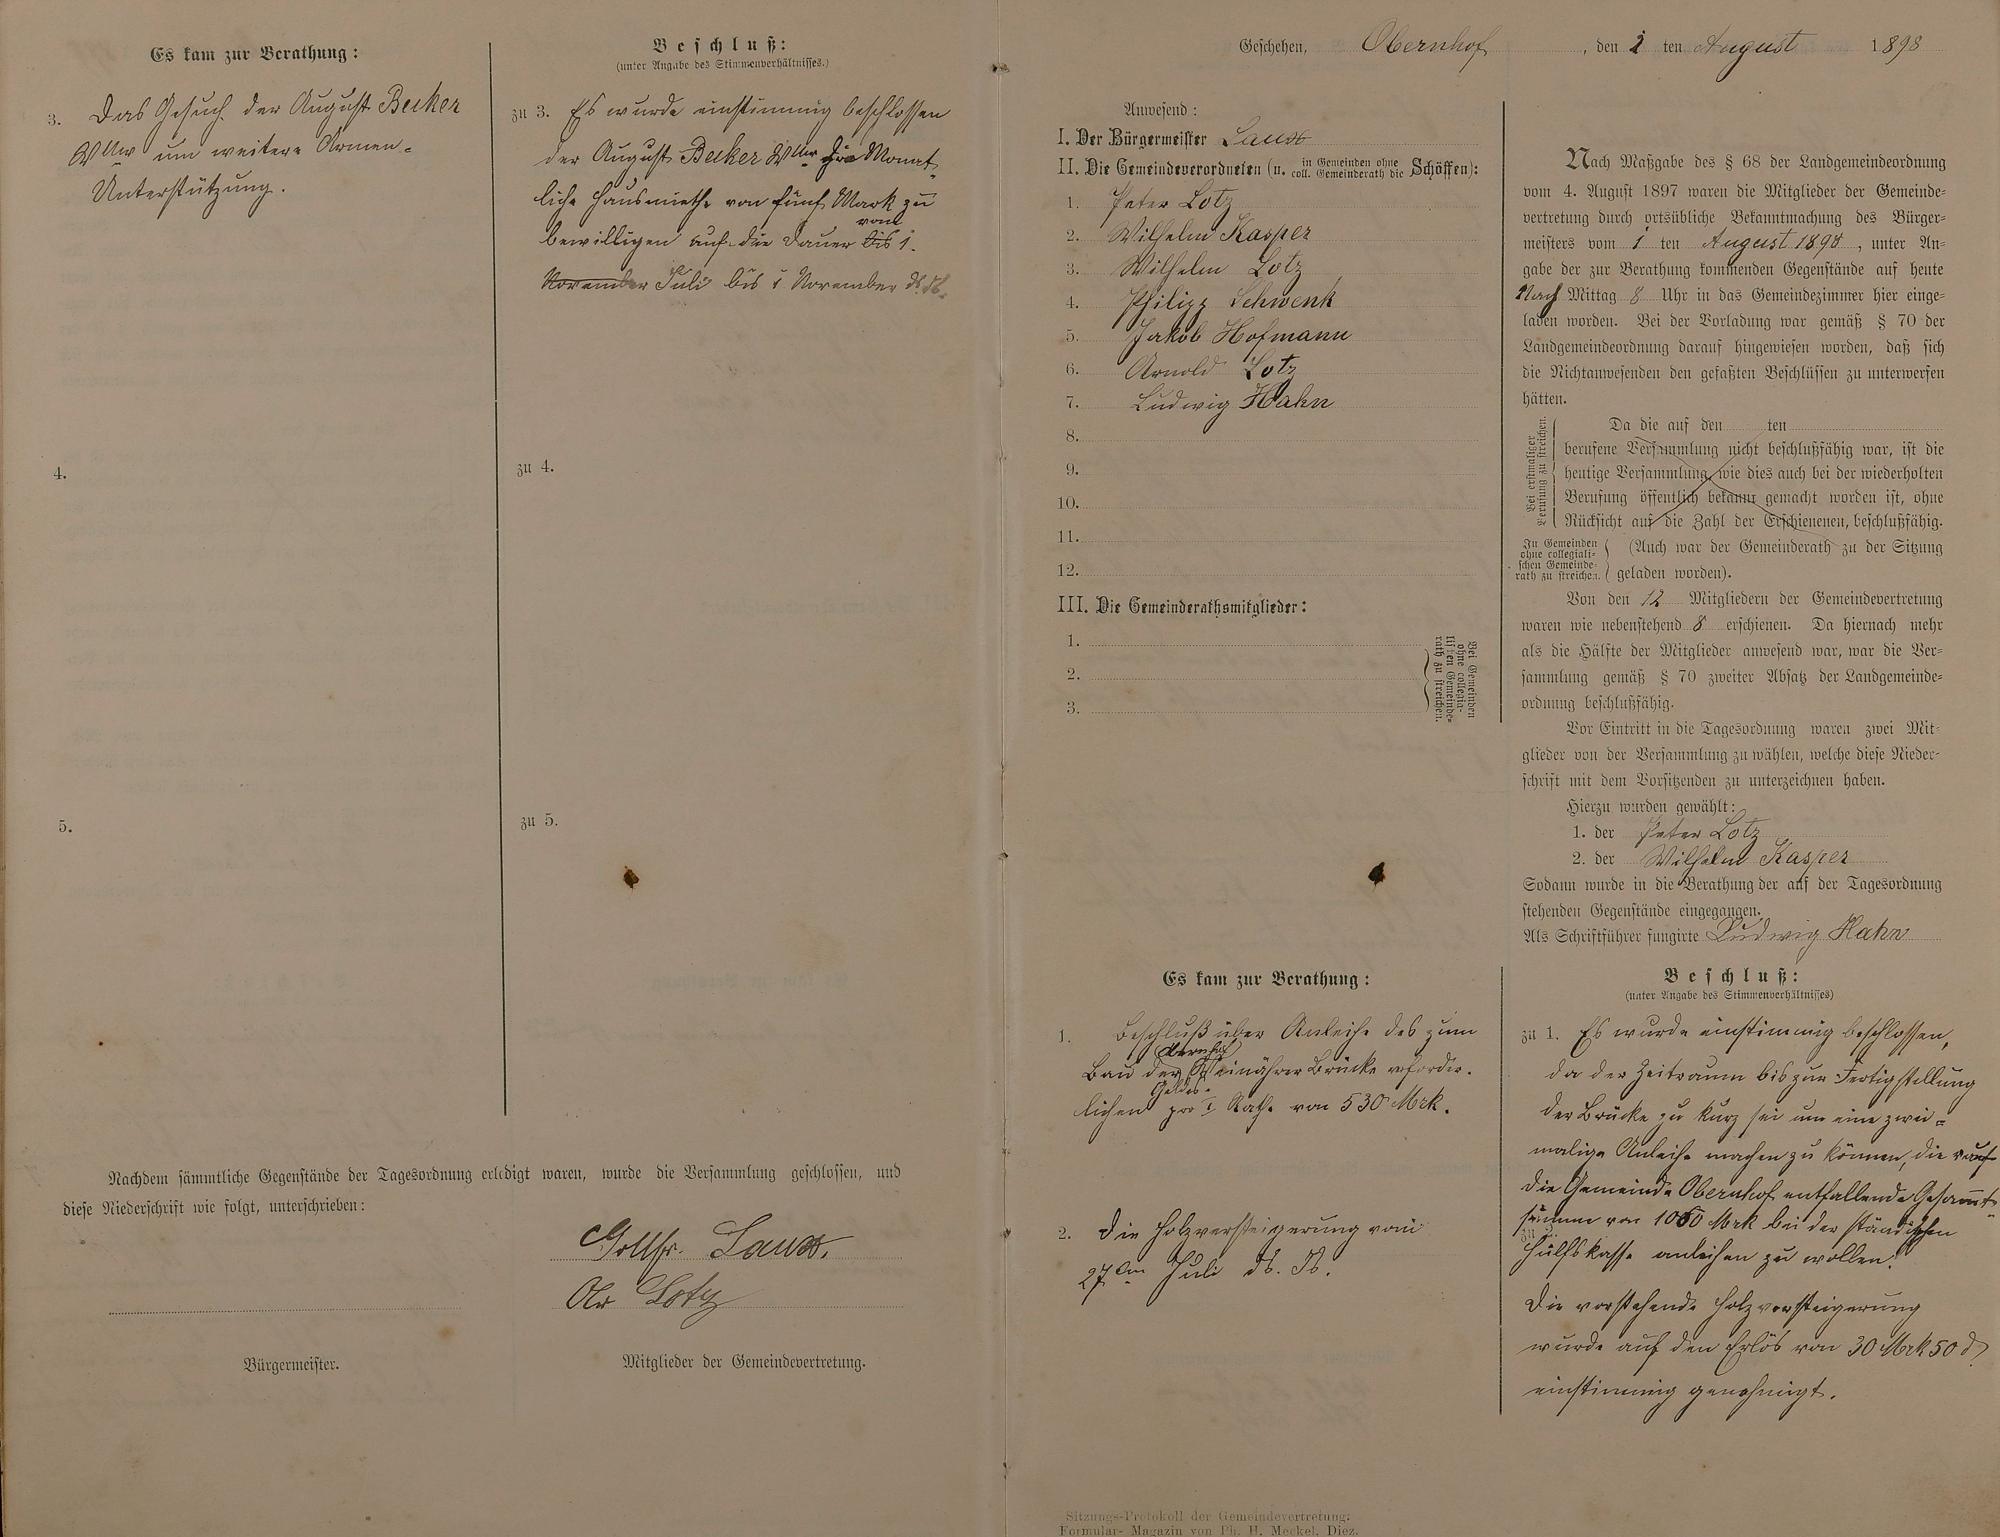 Es kam zur Berathung:
3. Das Gesuch der August Becker
Wllw um weitere Armen-
Unterstützung.
4.
5.
Beschluß:
(unter Angabe des Stimmenverhältnisses.)
zu 3. Es wurde einstimmig beschlossen
der August Becker Wllw die Monat-
liche Hausmiethe von fünf Mark zu
vom
bewilligen auf die Dauer bis 1.
November Juli bis 1 November ds. Js.
zu 4.
zu 5.
Nachdem sämmtliche Gegenstände der Tagesordnung erledigt waren, wurde die Versammlung geschlossen, und
diese Niederschrift wie folgt, unterschrieben:
Lotz
Bürgermeister.
Mitglieder der Gemeindevertretung.
Geschehen, Obernhof, den 2 ten August 1898
Anwesend:
I. Der Bürgermeister
II. Die Gemeindeverordneten (u. in Gemeinden ohne coll. Gemeinderath die Schöffen):
1. Peter Lotz
2. Wilhelm Kasper
3. Wilhelm Lotz
4. Philipp Schwenk
5. Jakob Hofmann
6. Arnold Lotz
7. Ludwig Hahn
8.
9.
10.
11.
12.
III. Die Gemeinderathsmitglieder:
1.
2.
3.
Bei Gemeinden
ohne collegia-
lischen Gemeinde-
rath zu streichen.
Nach Maßgabe des § 68 der Landgemeindeordnung
vom 4. August 1897 waren die Mitglieder der Gemeinde-
vertretung durch ortsübliche Bekanntmachung des Bürger-
meisters vom 1 ten August 1898, unter An-
gabe der zur Berathung kommenden Gegenstände auf heute
Nach Mittag 8 Uhr in das Gemeindezimmer hier einge-
laden worden. Bei der Vorladung war gemäß § 70 der
Landgemeindeordnung darauf hingewiesen worden, daß sich
die Nichtanwesenden den gefaßten Beschlüssen zu unterwerfen
hätten.
Bei erstmaliger
Berufung zu streichen.
Da die auf den ten
berufene Versammlung nicht beschlußfähig war, ist die
heutige Versammlung, wie dies auch bei der wiederholten
Berufung öffentlich bekannt gemacht worden ist, ohne
Rücksicht auf die Zahl der Erschienenen, beschlußfähig.
In Gemeinden
ohne collegiali-
schen Gemeinde-
rath zu streichen.
(Auch war der Gemeinderath zu der Sitzung
geladen worden).
Von den 12 Mitgliedern der Gemeindevertretung
waren wie nebenstehend 8 erschienen. Da hiernach mehr
als die Hälfte der Mitglieder anwesend war, war die Ver-
sammlung gemäß § 70 zweiter Absatz der Landgemeinde-
ordnung beschlußfähig.
Vor Eintritt in die Tagesordnung waren zwei Mit-
glieder von der Versammlung zu wählen, welche diese Nieder-
schrift mit dem Vorsitzenden zu unterzeichnen haben.
Hierzu wurden gewählt:
1. der Peter Lotz
2. der Wilhelm Kasper
Sodann wurde in die Berathung der auf der Tagesordnung
stehenden Gegenstände eingegangen.
Als Schriftführer fungirte Ludwig Hahn
Es kam zur Berathung:
1. Beschluß über Anleihe des zum
Obernhof
Bau der Weinährer Brücke erforder-
Geldes
lichen pro I Rathe von 530 Mrk.
2. Die Holzversteigerung vom
27ten Juli ds. Js.
Beschluß:
(unter Angabe des Stimmenverhältnisses)
zu 1. Es wurde einstimmig beschlossen,
da der Zeitraum bis zur Fertigstellung
der Brücke zu kurz sei um eine zwei-
malige Anleihe machen zu können, die auf
die Gemeinde Obernhof entfallende Gesammt-
summe von 1060 Mrk bei der ständischen
zu 2.
Hülfskasse anleihen zu wollen.
Die vorstehende Holzversteigerung
wurde auf den Erlös von 30 Mrk 50 d
einstimmig genehmigt.
Sitzungs-Protokoll der Gemeindevertretung:
Formular-Magazin von Ph. H. Meckel, Diez.